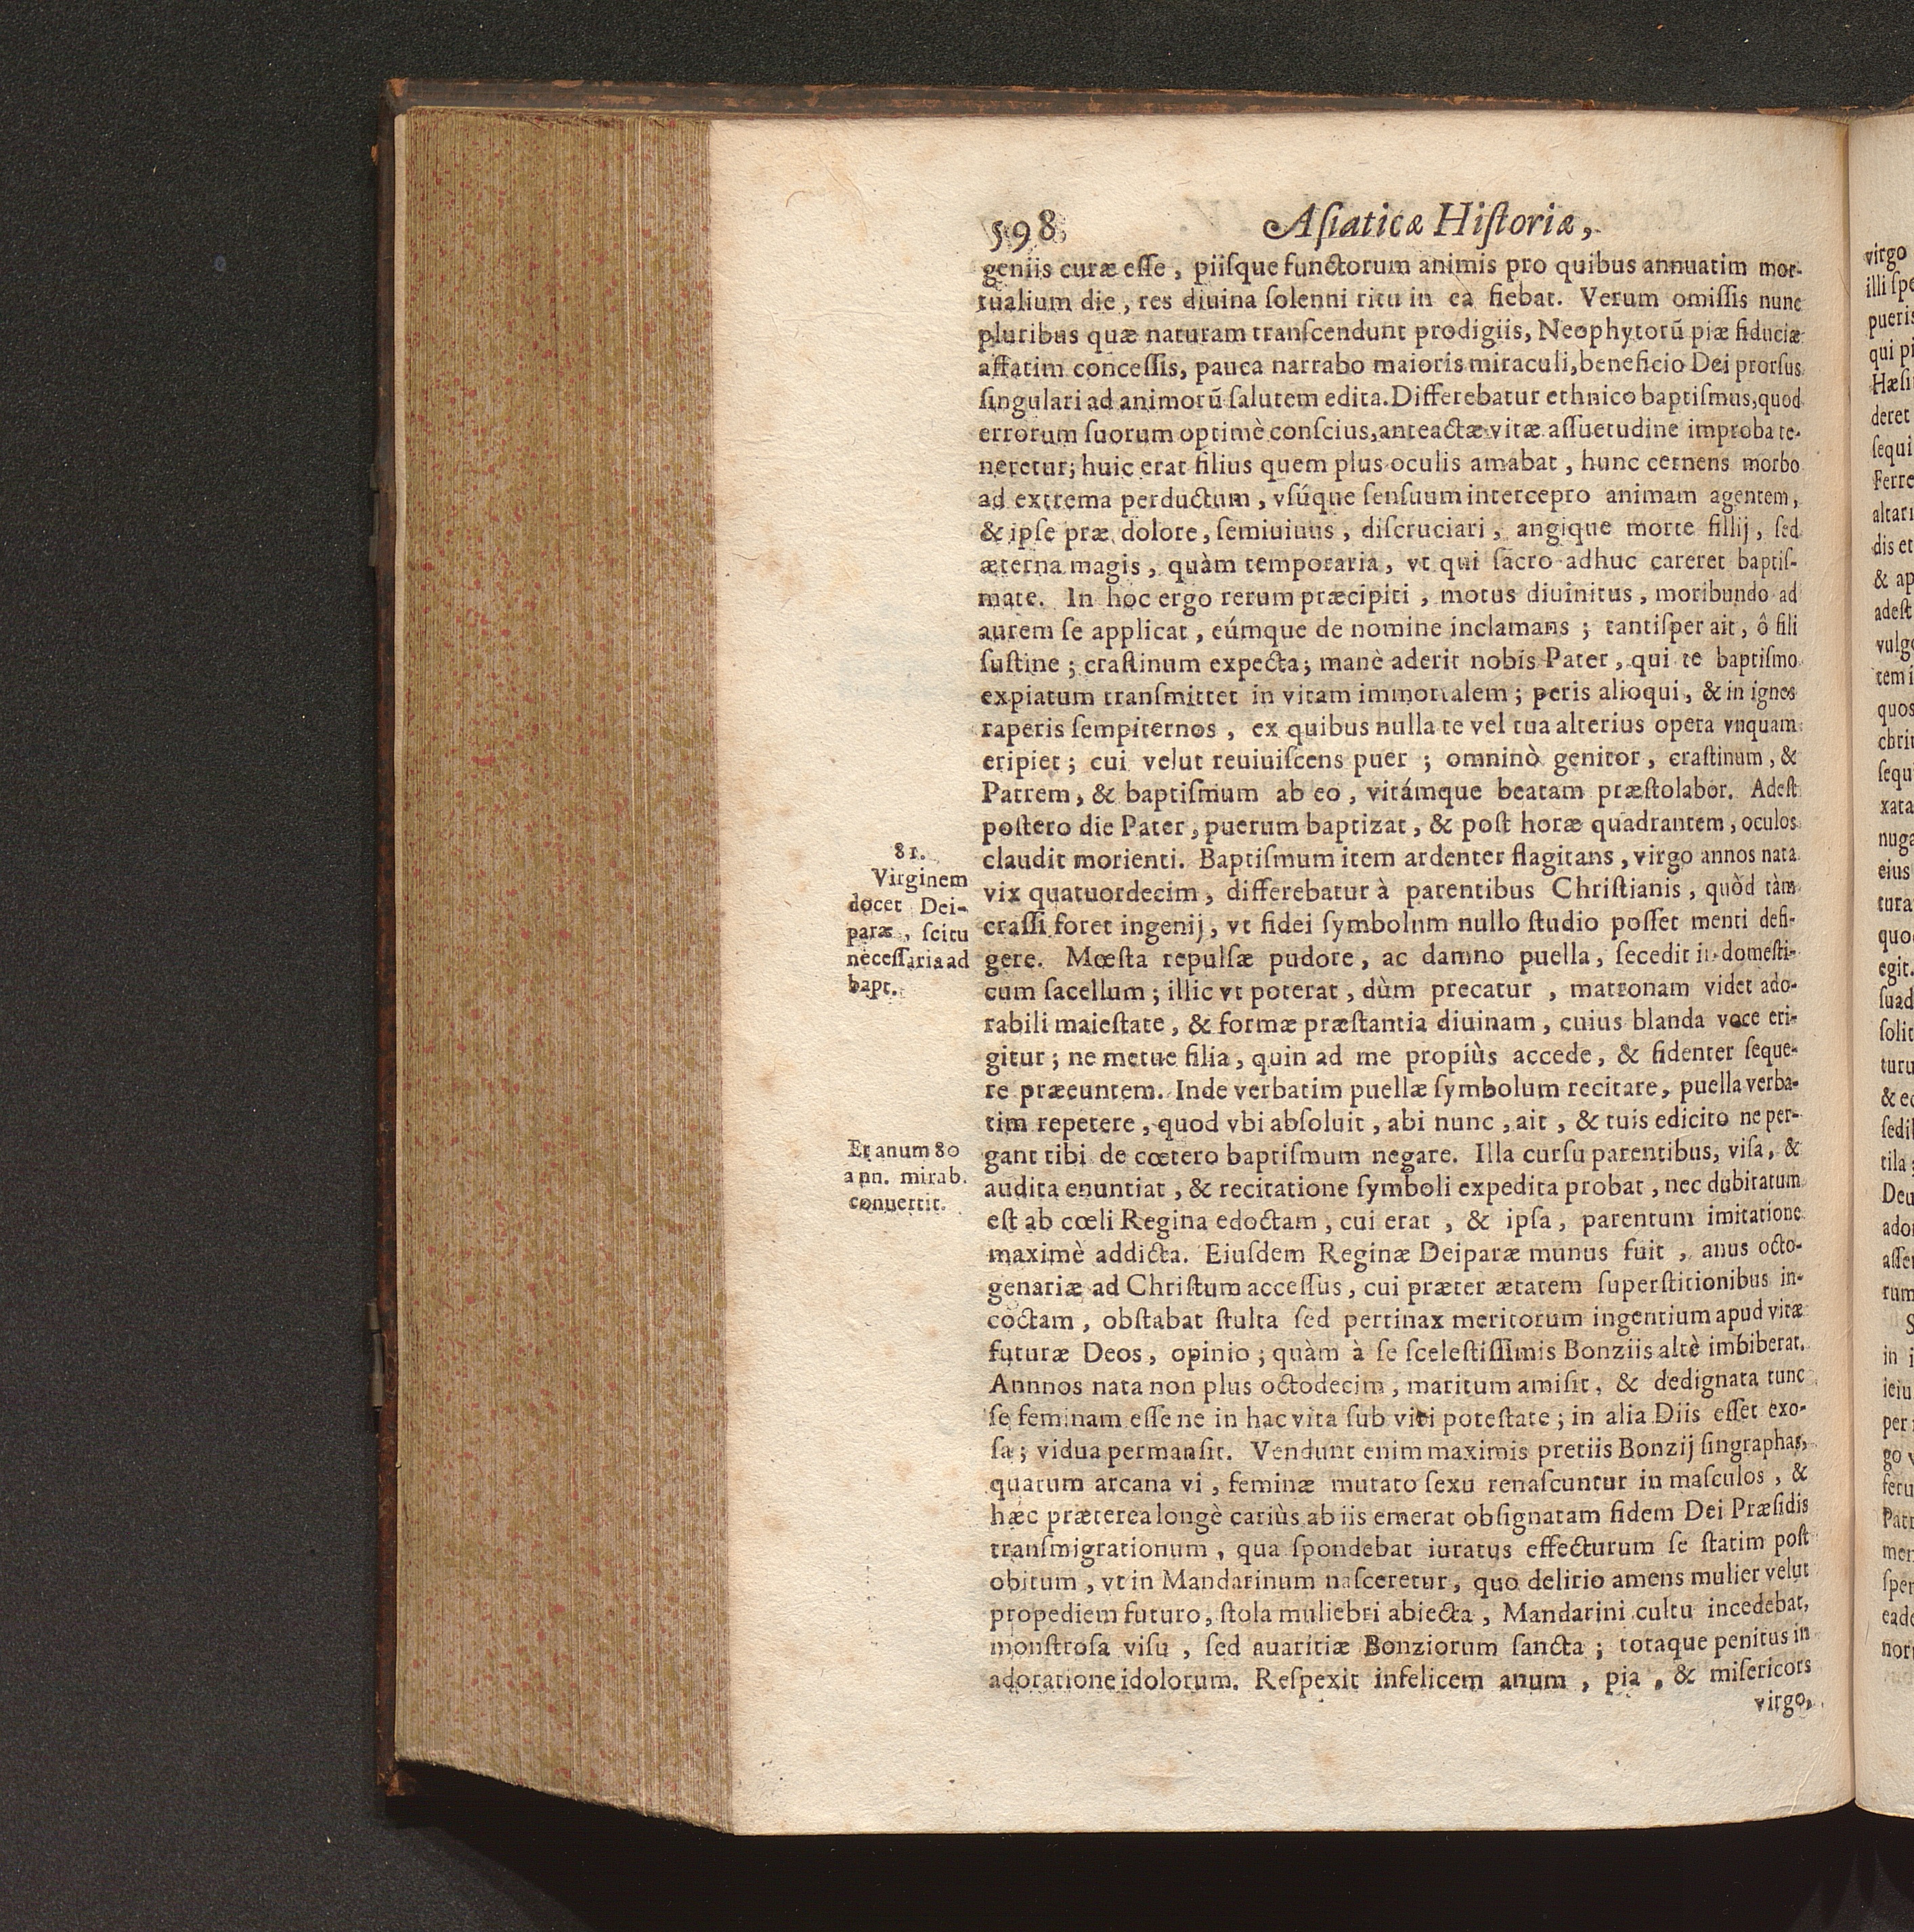 598 Aſiaticæ Hiſtoriæ,
geniis curæ eſſe, piiſque functorum animis pro quibus annuatim mor-
tualium die, res diuina ſolenni ritu in ea fiebat. Verum omiſſis nunc
pluribus quæ naturam tranſcendunt prodigiis, Neophytorũ piæ fiduciæ
affatim conceſſis, pauca narrabo maioris miraculi, beneficio Dei prorſus
ſingulari ad animorũ ſalutem edita. Differebatur ethnico baptiſmus, quod
errorum ſuorum optimè conſcius, anteactæ vitæ aſſuetudine improba te-
neretur; huic erat filius quem plus oculis amabat, hunc cernens morbo
ad extrema perductum, vſúque ſenſuum intercepto animam agentem,
& ipſe præ dolore, ſemiuiuus, diſcruciari, angique morte fillij, ſed
æterna magis, quàm temporaria, vt qui ſacro adhuc careret baptiſ-
mate. In hoc ergo rerum præcipiti, motus diuinitus, moribundo ad
aurem ſe applicat, eúmque de nomine inclamans; tantiſper ait, ô fili
ſuſtine; craſtinum expecta; manè aderit nobis Pater, qui te baptiſmo
expiatum tranſmittet in vitam immortalem; peris alioqui, & in ignes
raperis ſempiternos, ex quibus nulla te vel tua alterius opera vnquam
eripiet; cui velut reuiuiſcens puer; omninò genitor, craſtinum, &
Patrem, & baptiſmum ab eo, vitámque beatam præſtolabor. Adeſt
poſtero die Pater, puerum baptizat, & poſt horæ quadrantem, oculos
claudit morienti. Baptiſmum item ardenter flagitans, virgo annos nata
vix quatuordecim, differebatur à parentibus Chriſtianis, quòd tàm
craſſi foret ingenij, vt fidei ſymbolum nullo ſtudio poſſet menti defi-
gere. Mœſta repulſæ pudore, ac damno puella, ſecedit in domeſti-
cum ſacellum; illic vt poterat, dùm precatur, matronam videt ado-
rabili maieſtate, & formæ præſtantia diuinam, cuius blanda voce eri-
gitur; ne metue filia, quin ad me propiùs accede, & fidenter ſeque-
re præeuntem. Inde verbatim puellæ ſymbolum recitare, puella verba-
tim repetere, quod vbi abſoluit, abi nunc, ait, & tuis edicito ne per-
gant tibi de cœtero baptiſmum negare. Illa curſu parentibus, viſa, &
audita enuntiat, & recitatione ſymboli expedita probat, nec dubitatum
eſt ab cœli Regina edoctam, cui erat, & ipſa, parentum imitatione
maximè addicta. Eiuſdem Reginæ Deiparæ munus fuit, anus octo-
genariæ ad Chriſtum acceſſus, cui præter ætatem ſuperſtitionibus in-
coctam, obſtabat ſtulta ſed pertinax meritorum ingentium apud vitæ
futuræ Deos, opinio; quàm à ſe ſceleſtiſſimis Bonziis altè imbiberat.
Annnos nata non plus octodecim, maritum amiſit, & dedignata tunc
ſe feminam eſſe ne in hac vita ſub viri poteſtate; in alia Diis eſſet exo-
ſa; vidua permanſit. Vendunt enim maximis pretiis Bonzij ſingraphas,
quarum arcana vi, feminæ mutato ſexu renaſcuntur in maſculos, &
hæc præterea longè cariùs ab iis emerat obſignatam fidem Dei Præſidis
tranſmigrationum, qua ſpondebat iuratus effecturum ſe ſtatim poſt
obitum, vt in Mandarinum naſceretur, quo delirio amens mulier velut
propediem futuro, ſtola muliebri abiecta, Mandarini cultu incedebat,
monſtroſa viſu, ſed auaritiæ Bonziorum ſancta; totaque penitus in
adoratione idolorum. Reſpexit infelicem anum, pia, & miſericors
virgo,
81.
Virginem
docet Dei-
paræ, ſcitu
neceſſaria ad
bapt.
Et anum 80
ann. mirab.
conuertit.
virgo
illi ſpe
pueris
qui pi
Hæſi
deret
ſequi
Ferre
altari
dis et
& ap
adeſt
vulgo
tem i
quos
ebrie
ſequ
xata
nuga
eius
tura
quo
egit.
ſuad
ſolit
turu
& e
ſedil
tila
Deu
ador
aſſer
rum
S
in i
ieiu
per
go v
feru
Patr
men
ſper
eade
nor